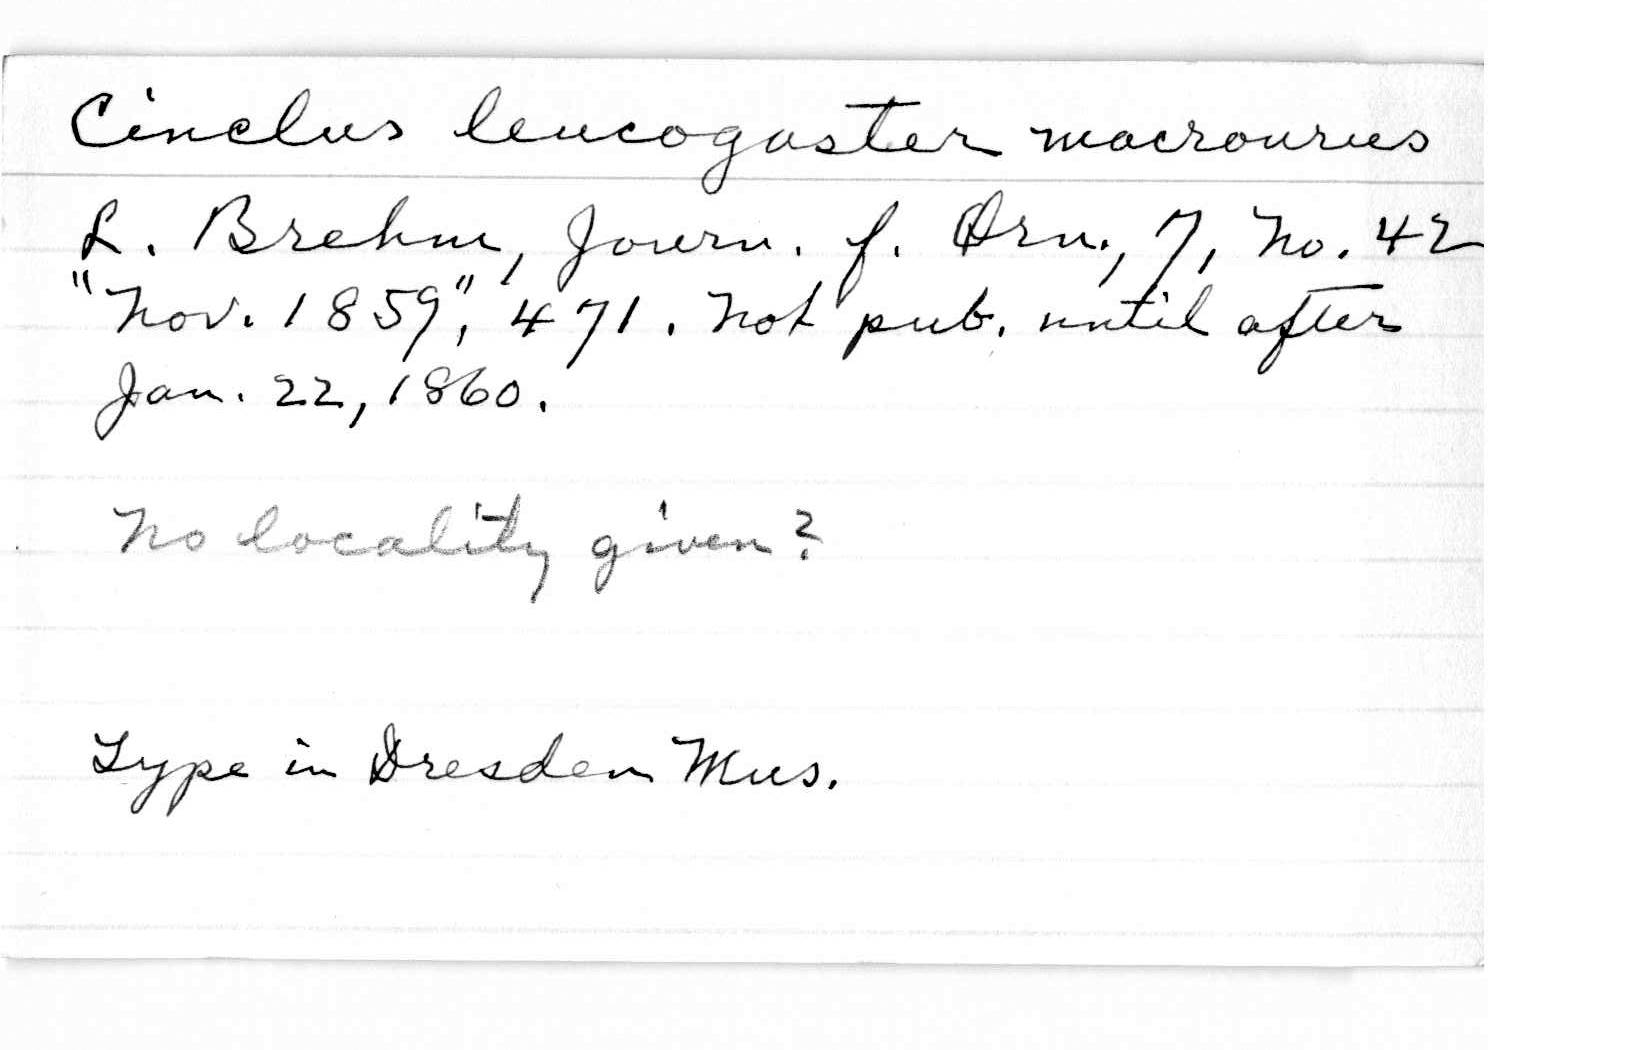 Cinclus leucogaster macrourus
L. Brehm, Journ. f. Orn., 7, No. 42
"Nov. 1859", 471. Not pub. until after
Jan. 22, 1860.
No locality given?
Type in Dresden Mus.